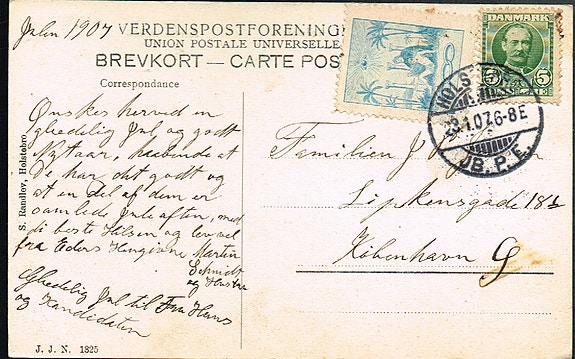 Julen 1907
VERDENSPOSTFORENING
UNION POSTALE UNIVERSELLE
BREVKORT — CARTE POS
Correspondance
DANMARK
5 5
HOLS
23.1.07.6-8E
JB.P.E.
Ønskes herved en
glædelig Jul og godt
Nytaar, haabende at
De har det godt og
at en Del af dem er
samlede Jule aften, med
de beste Hilsen og lev vel
fra Eders Hengivne Martin
Schmidt
og Hustru
Glædelig Jul til Fru Hans
og Kandidaten
Familien J
Lipkesgade 18
København Ø
S. Randlov, Holstebro.
J. J. N. 1325